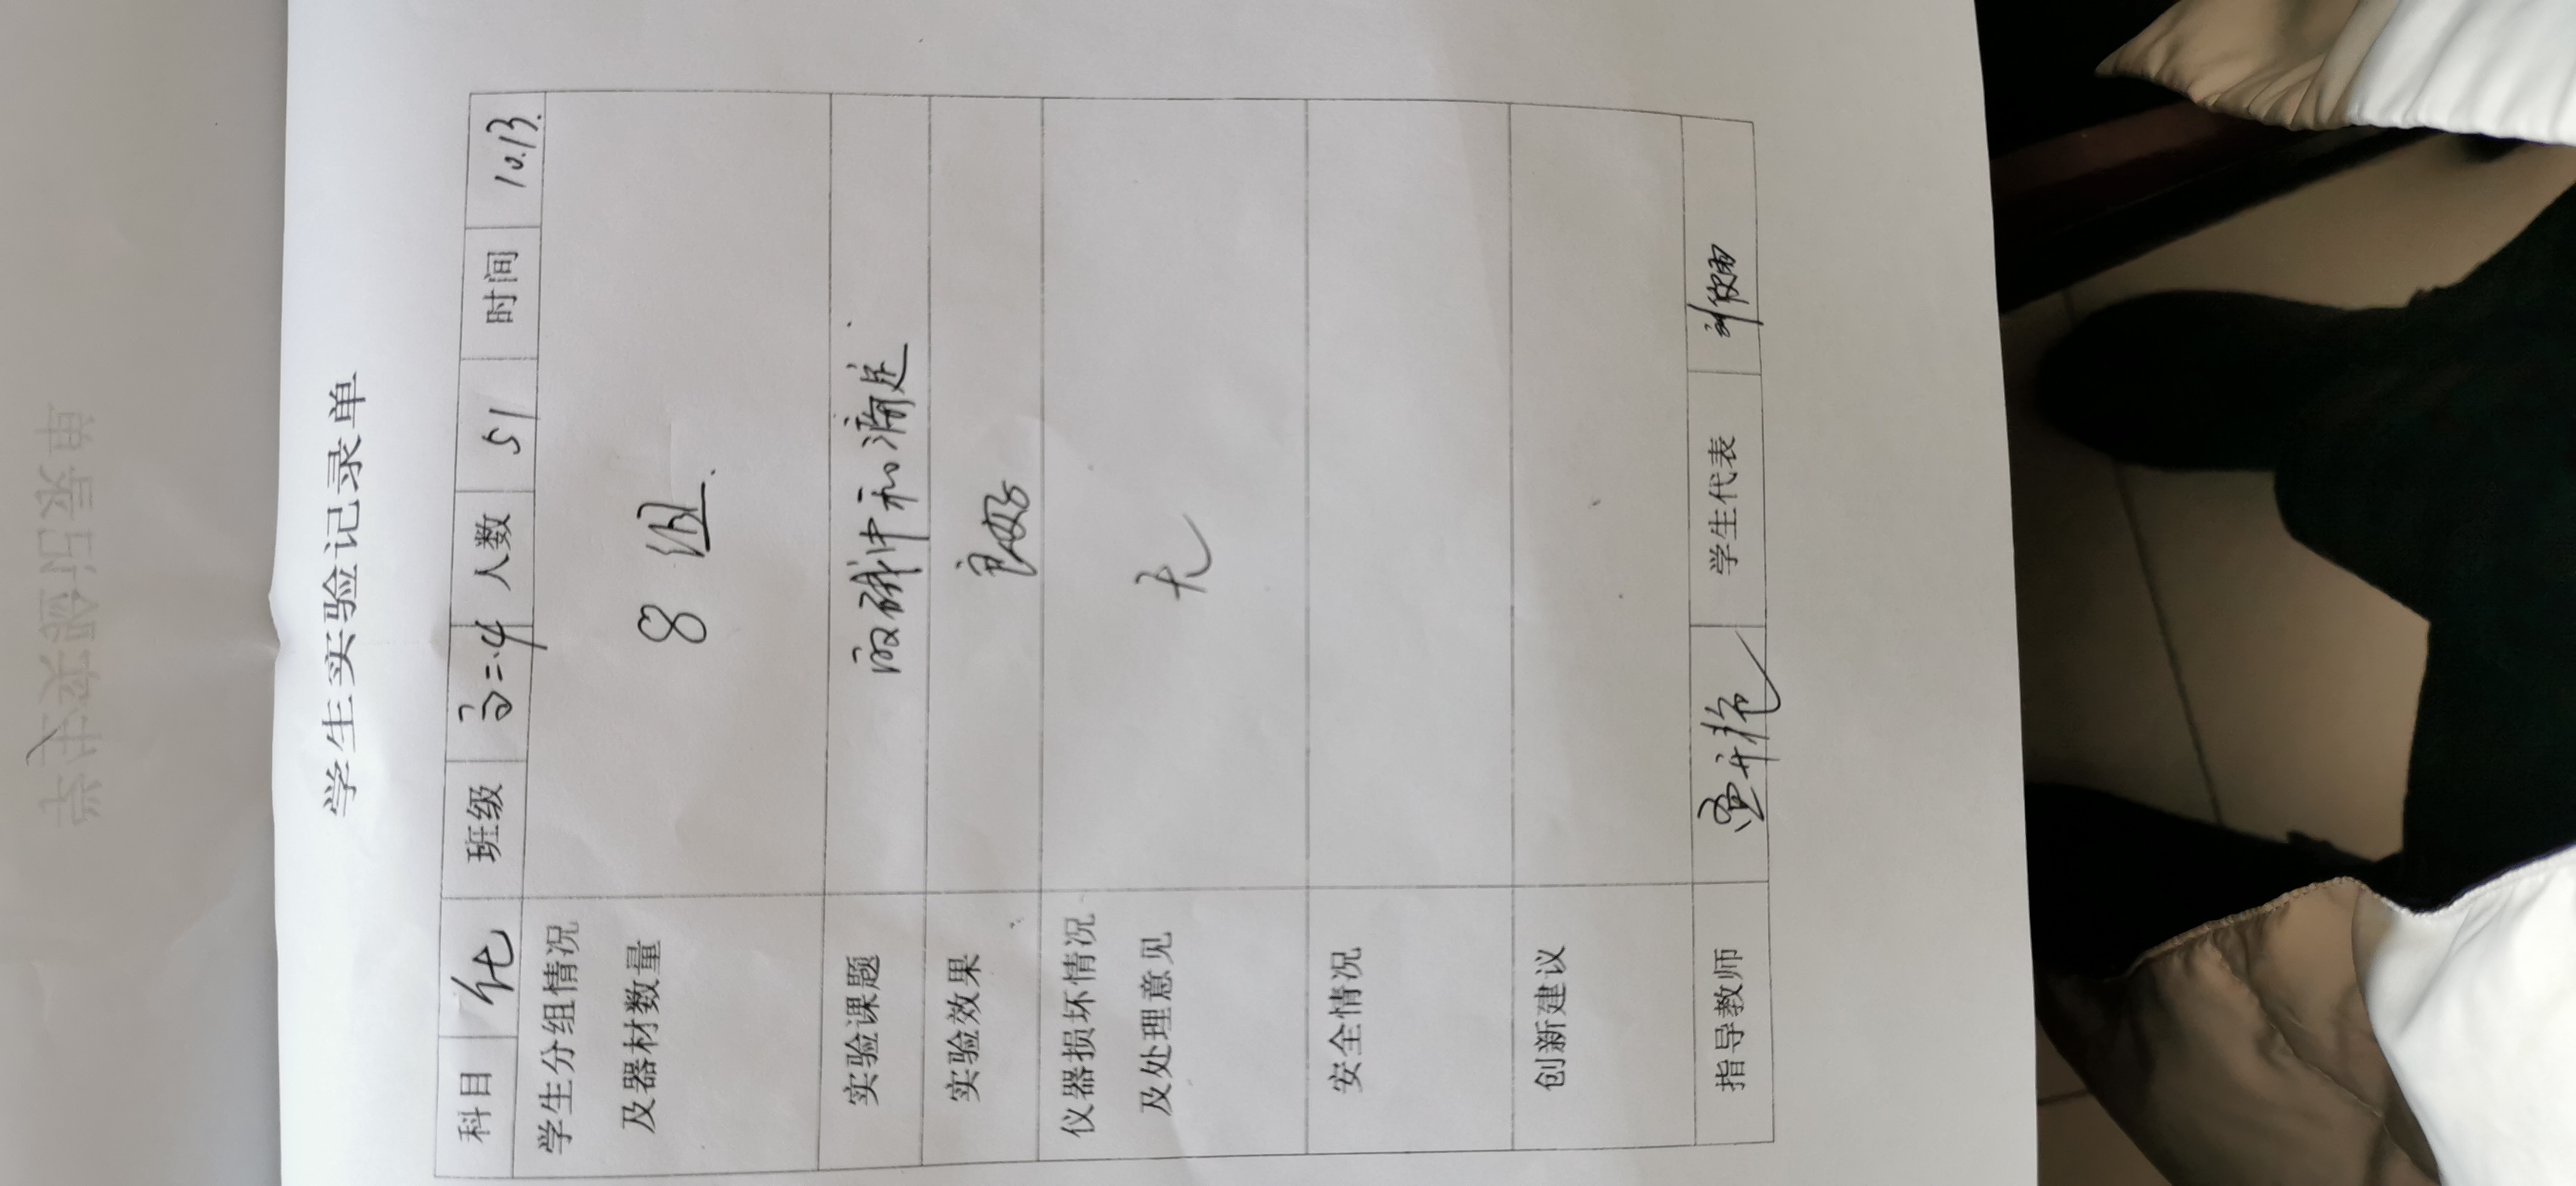 学生实验记录单
科目 化 班级 高二.4 人数 51 时间 10.13.
学生分组情况
及器材数量 8 组.
实验课题 酸碱中和滴定.
实验效果 良好
仪器损坏情况
及处理意见 无
安全情况
创新建议
指导教师 学生代表